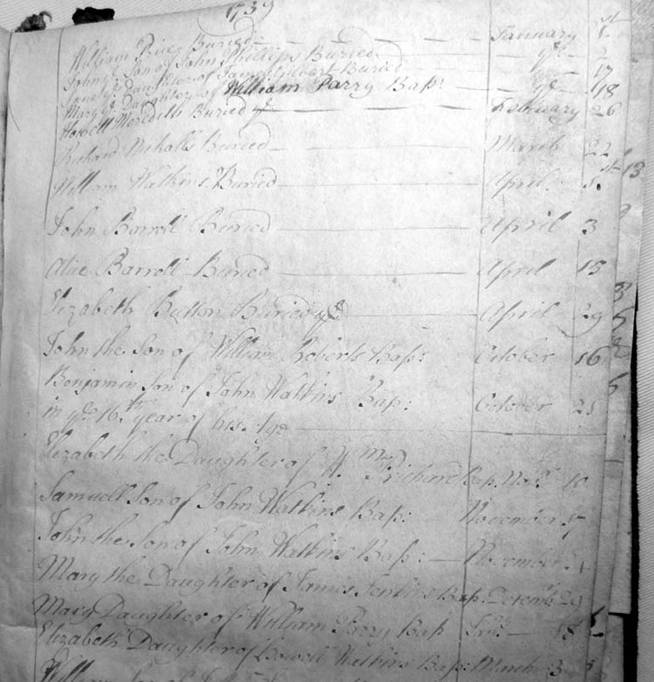 1739
William Price Buried January 1st
John ye Son of John Phillips Buried ye 2
Daughter of Buried ye 17
Mary ye Daughter of William Parry Bap: ye 18
Howell Meredith Buried ye February 26
Richard Nicholls Buried March 22
William Watkins Buried April
John Barroll Buried April 3
Alice Barroll Buried April 15
Elizabeth Button Buried ye April 29
John the Son of William Roberts Bap: October 16
Benjamin Son of John Watkins Bap: October 21
in ye 16th year of his Age
Elizabeth the Daughter of Wm Prichard Bap: 10
Samuell Son of John Watkins Bap: November
John the Son of John Watkins Bap: November
Mary the Daughter of James Jenkins Bap: Decemb 29
Mary Daughter of William Parry Bap 18
Elizabeth Daughter of Howell Watkins Bap: March 3
William Son of